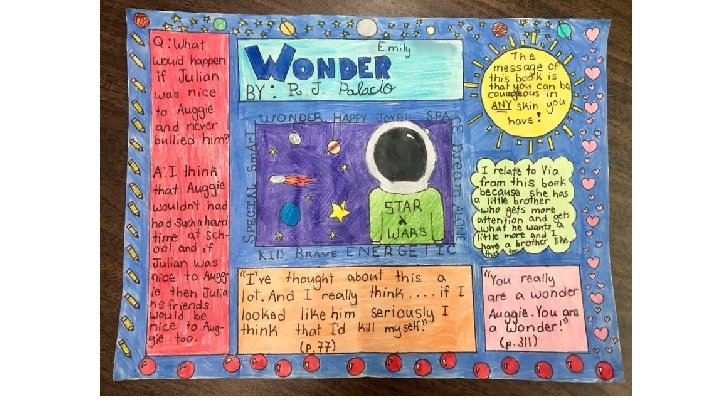 Emily
WONDER
BY: R.J. Palacio
Q: What
would happen
if Julian
was nice
to Auggie
and never
bullied him?
A: I think
that Auggie
wouldn't had
had such a hard
time at sch-
ool and if
Julian was
nice to Augg-
ie then Julia
ns friends
would be
nice to Aug-
gie too.
WONDER HAPPY JOYFUL SPACE
SPECIAL SMART
DREAM ALONE
STAR
WARS
KID BRAVE ENERGETIC
The
message of
this book is
that you can be
courageous in
ANY skin you
have!
I relate to Via
from this book
because she has
a little brother
who gets more
attention and gets
what he wants a
little more and I
have a brother like
"I've thought about this a
lot. And I really think .... if I
looked like him seriously I
think that I'd kill myself."
(p.77)
"You really
are a wonder
Auggie. You are
a wonder!"
(p.311)